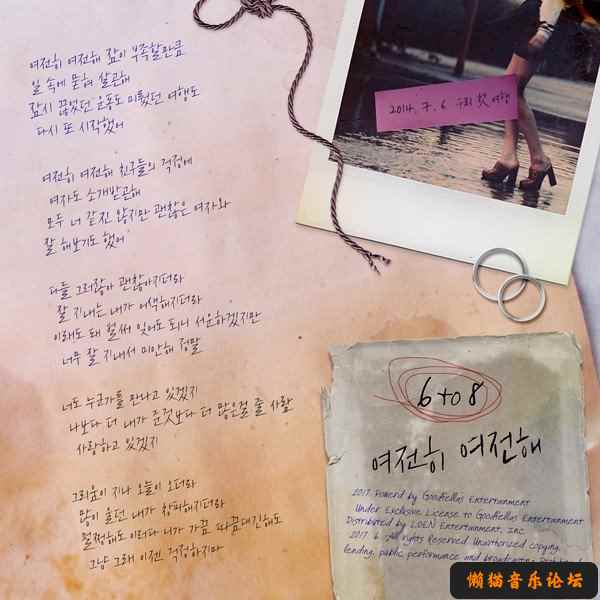 여전히 여전해 잠이 부족할만큼
일 속에 묻혀 살곤해
잠시 끊었던 운동도 미뤘던 여행도
다시 또 시작했어
여전히 여전해 친구들의 걱정에
여자도 소개받곤해
모두 너 같진 않지만 괜찮은 여자와
잘 해보기도 했어
다들 그러잖아 괜찮아지더라
잘 지내는 내가 어색해지더라
이래도 돼 벌써 잊어도 되니 서운하겠지만
너무 잘 지내서 미안해 정말
너도 누군가를 만나고 있겠지
나보다 더 내가 준것보다 더 많은걸 줄 사람
사랑하고 있겠지
그리움이 지나 오늘이 오더라
많이 울던 내가 창피해지더라
멀쩡해도 이러다 니가 가끔 따끔대긴해도
그냥 그래 이젠 걱정하지마
2014. 7. 6 우리 첫 여행
6 to 8
여전히 여전해
2017. Powerd by Goodfellas Entertainment
Under Exclusive License to Goodfellas Entertainment
Distributed by LOEN Entertainment, Inc.
2017. 6. All rights Reserved. Unauthorized copying,
lending, public performance and broadcasting
懒猫音乐论坛